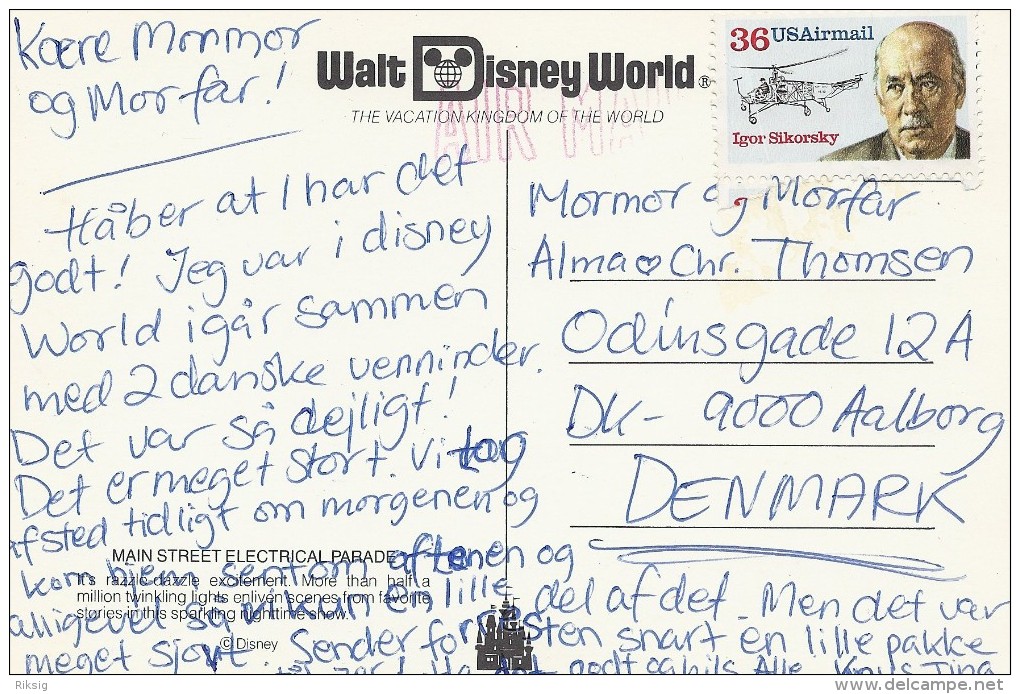 Kære Mormor
og Morfar!
Håber at I har det
godt! Jeg var i disney
World igår sammen
med 2 danske venninder.
Det var så dejligt!
Det er meget stort. Vi tog
afsted tidligt om morgenen og
kom hjem sent om aftenen og
alligevel så vi kun en lille del af det. Men det var
meget sjovt. Sender forresten snart en lille pakke
det godt og hils Alle. Knus Tina
Walt Disney World®
THE VACATION KINGDOM OF THE WORLD
AIR MA
36 USAirmail
Igor Sikorsky
Mormor og Morfar
Alma ♡ Chr. Thomsen
Odinsgade 12A
DK- 9000 Aalborg
DENMARK
MAIN STREET ELECTRICAL PARADE
It's razzle dazzle excitement. More than half a
million twinkling lights enliven scenes from favorite
stories in this sparkling nighttime show.
© Disney
Riksig
www.delcampe.net